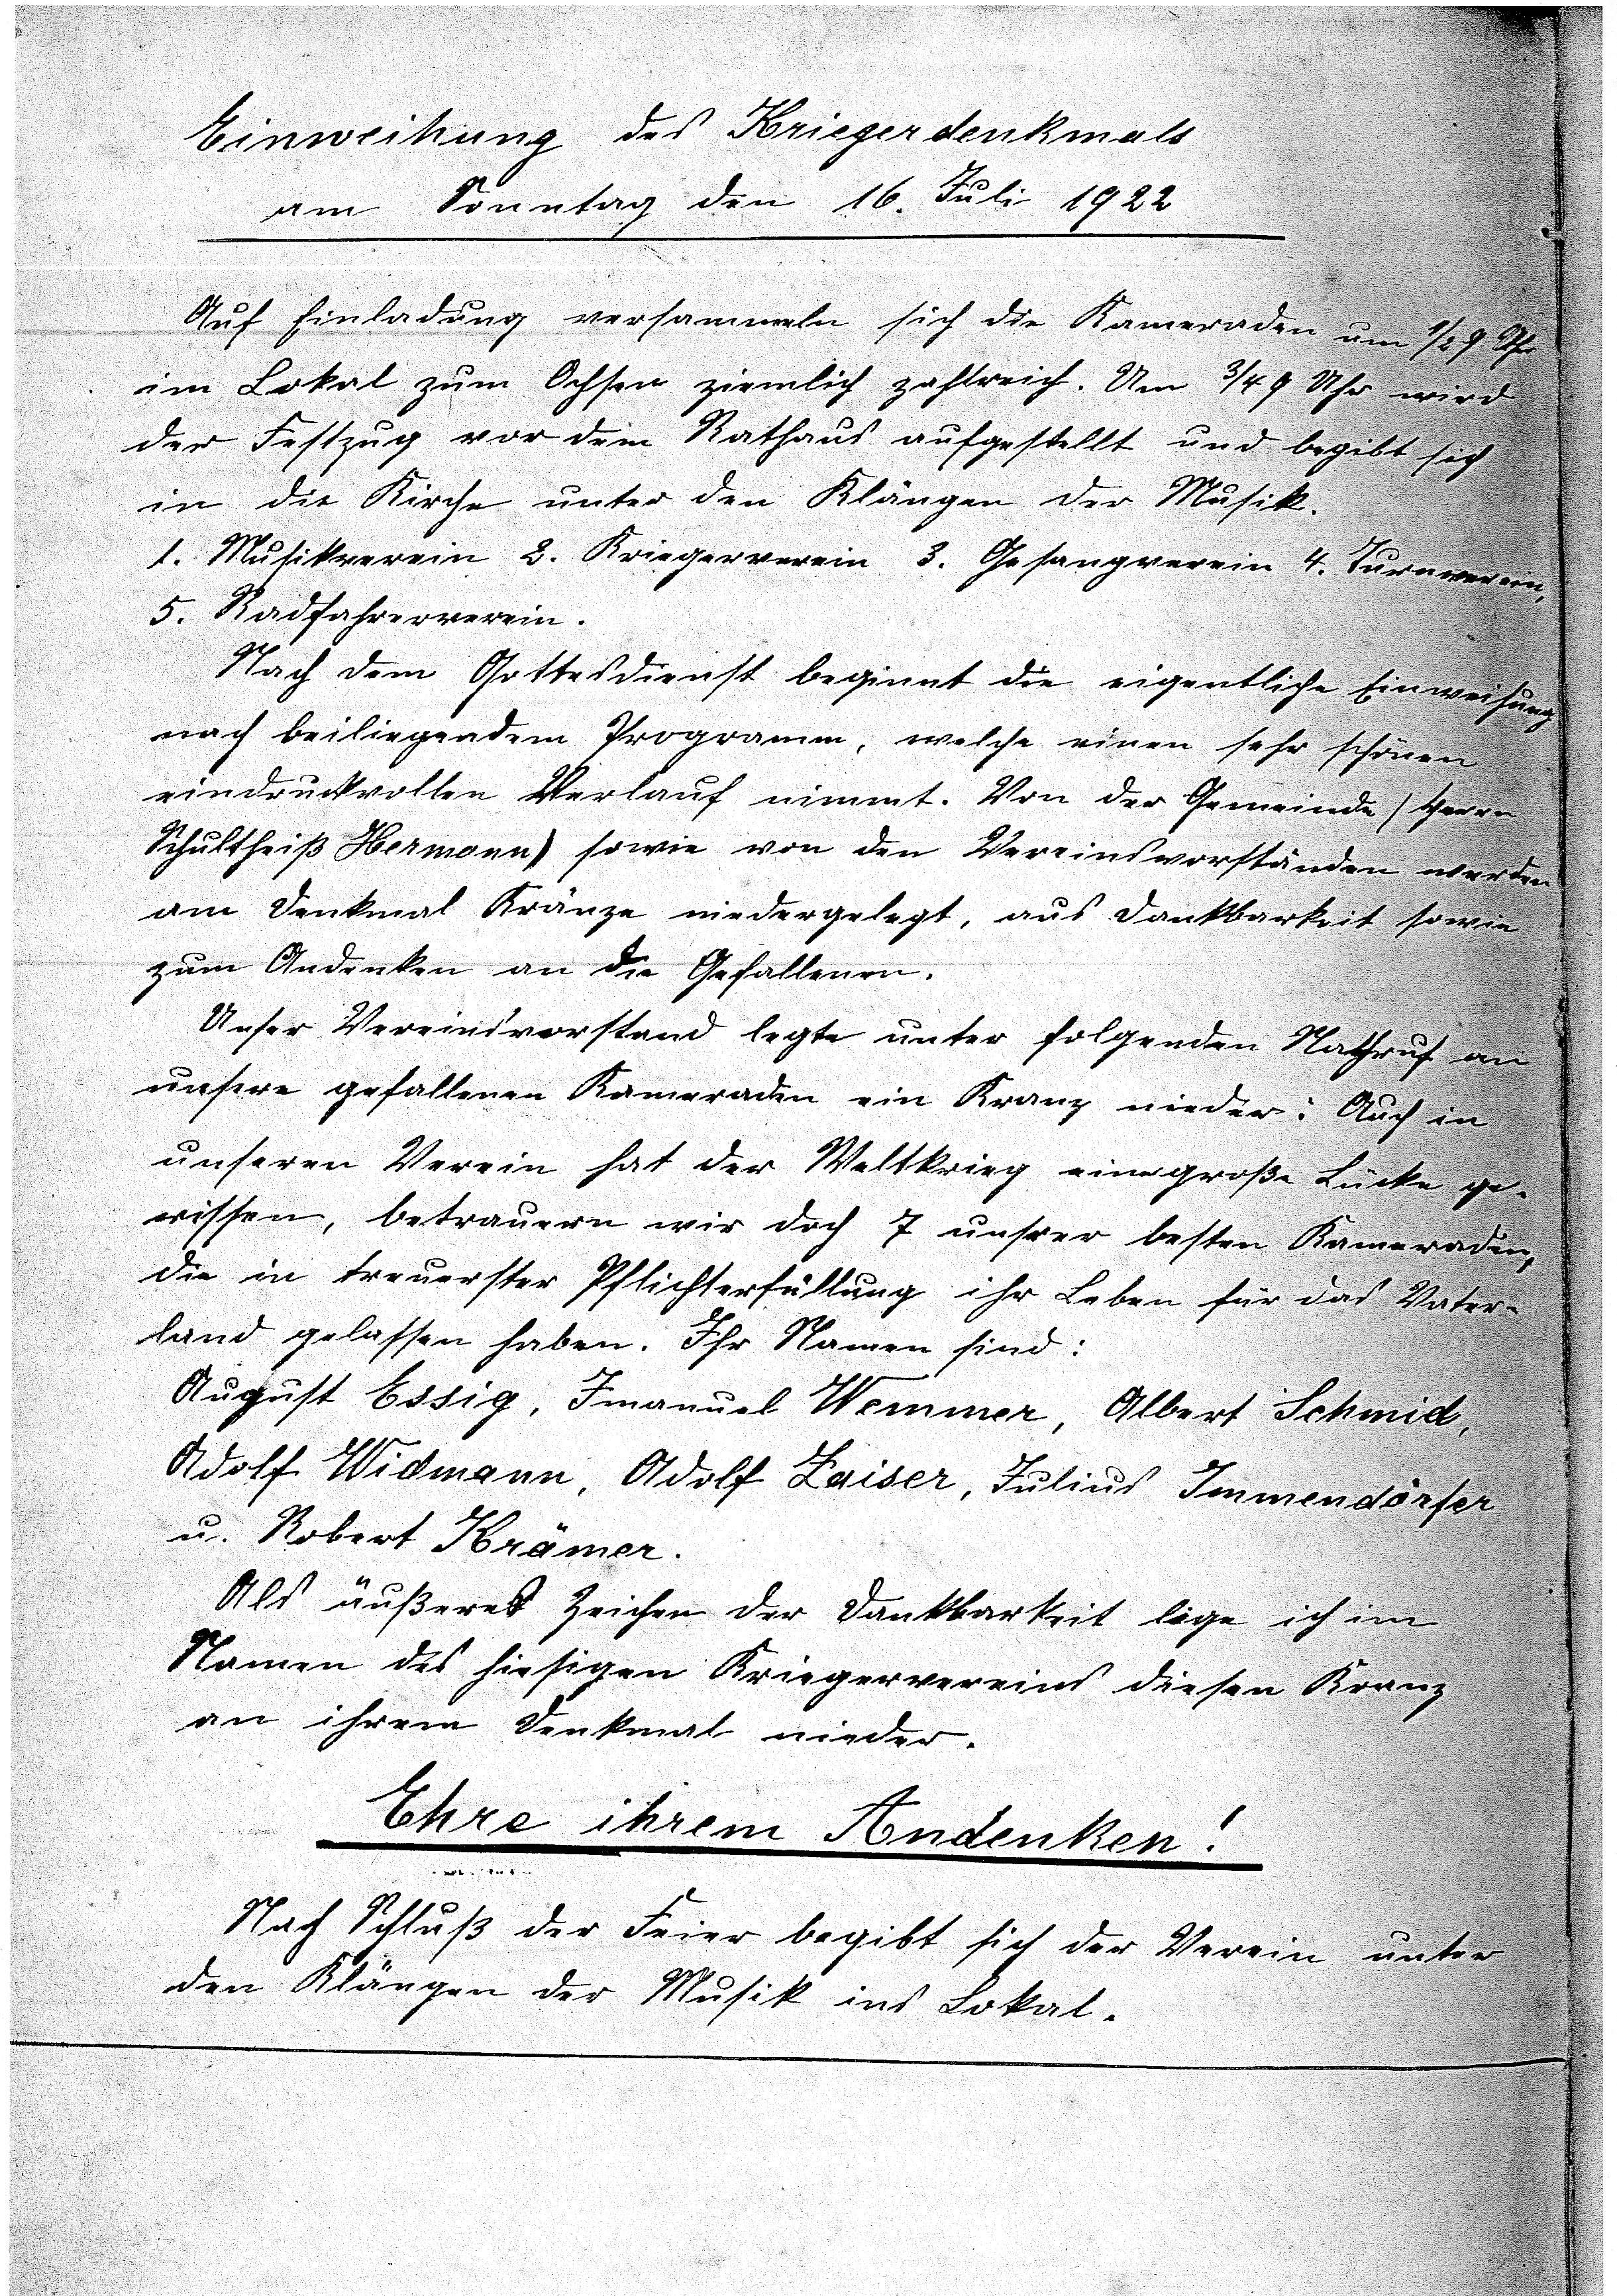 Einweihung des Kriegerdenkmals
am Sonntag den 16. Juli 1922
Auf Einladung versammeln sich die Kameraden um 1/2 9 Uhr
im Lokal zum Ochsen ziemlich zahlreich. Um 3/4 9 Uhr wird
der Festzug vor dem Rathaus aufgestellt und begibt sich
in die Kirche unter den Klängen der Musik.
1. Musikverein 2. Kriegerverein 3. Gesangverein 4. Turnverein,
5. Radfahrerverein.
Nach dem Gottesdienst beginnt die eigentliche Einweihung
nach beiliegendem Programm, welche einen sehr schönen
eindruckvollen Verlauf nimmt. Von der Gemeinde (Herrn
Schultheiß Hermann) sowie von den Vereinsvorständen werden
am Denkmal Kränze niedergelegt, aus Dankbarkeit sowie
zum Andenken an die Gefallenen.
Unser Vereinsvorstand legte unter folgenden Nachruf an
unsere gefallenen Kameraden ein Kranz nieder: Auch in
unseren Verein hat der Weltkrieg eine große Lücke ge-
rissen, betrauern wir doch 7 unsrer besten Kameraden,
die in treuerster Pflichterfüllung ihr Leben für das Vater-
land gelassen haben. Ihr Namen sind:
August Essig, Imanuel Wemmer, Albert Schmid,
Adolf Widmann, Adolf Zaiser, Julius Immendörfer
u. Robert Krämer.
Als äußeres Zeichen der Dankbarkeit lege ich im
Namen des hiesigen Kriegervereins diesen Kranz
an ihrem Denkmal nieder.
Ehre ihrem Andenken!
Nach Schluß der Feier begibt sich der Verein unter
den Klängen der Musik ins Lokal.